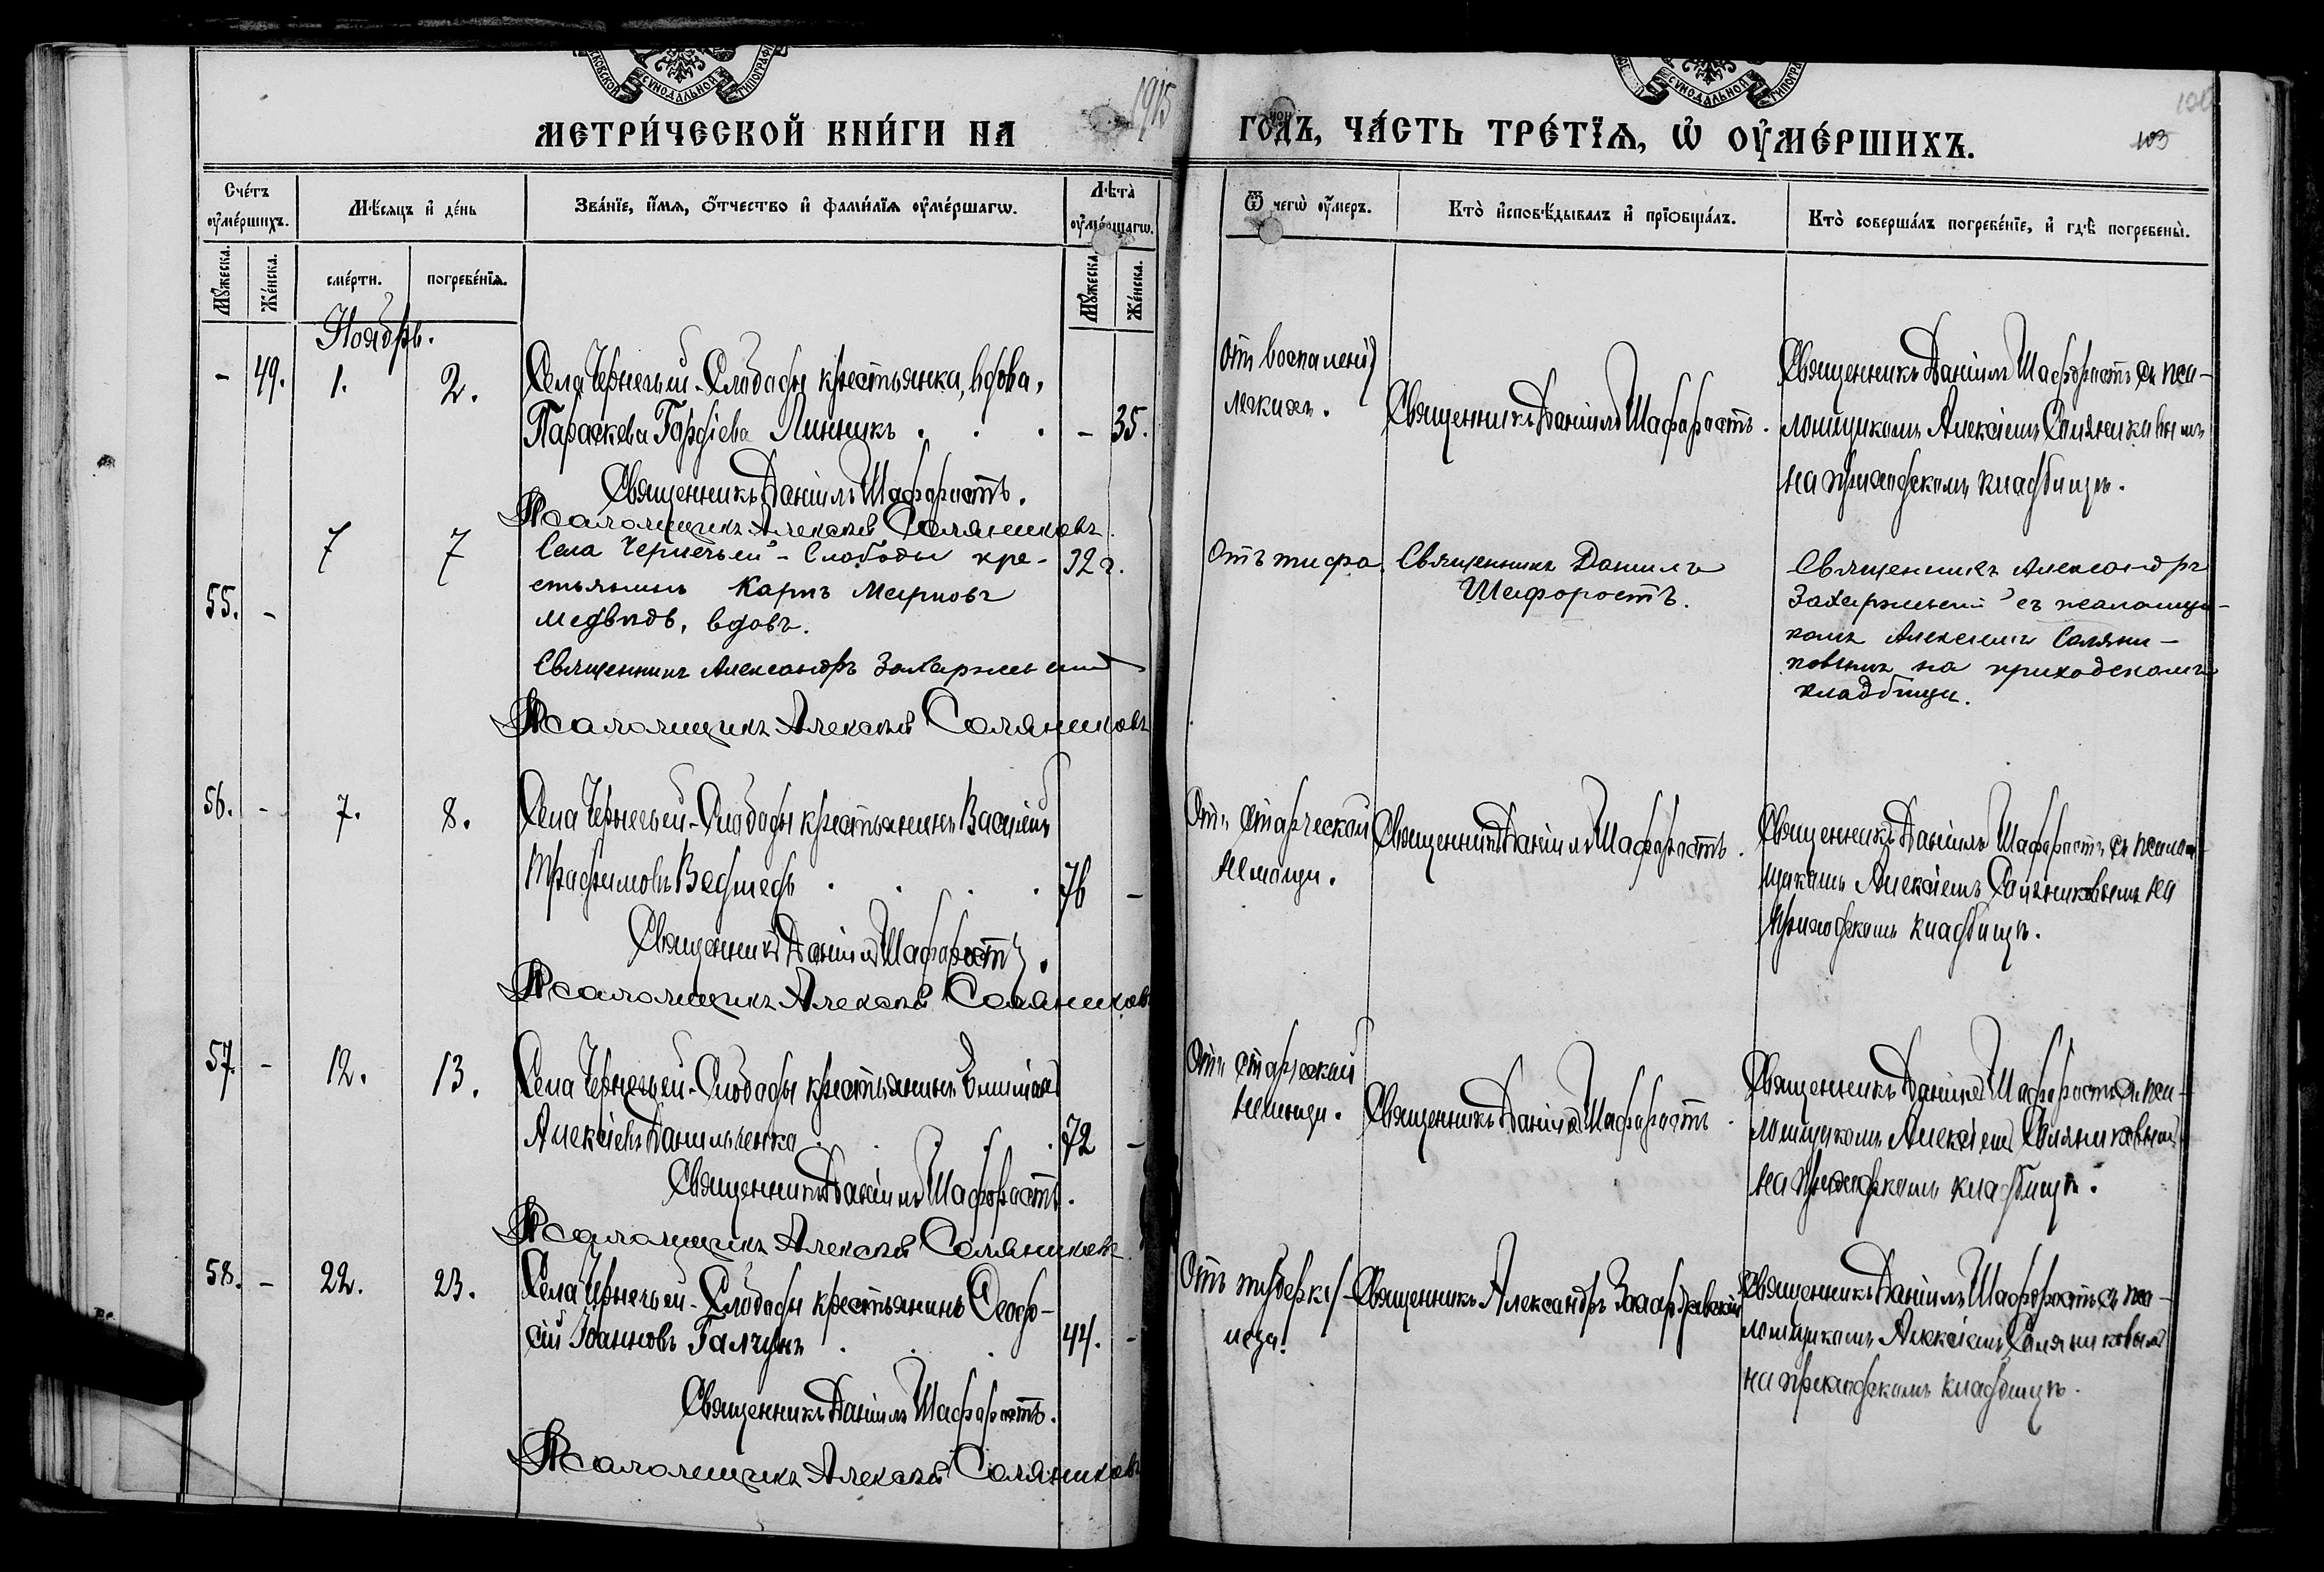 МЕТРИ́ЧЕСКОЙ КНИ́ГИ НА
1915
ГОДЪ, ЧА́СТЬ ТРЕ́ТЇѦ, Ѡ҆ ОУ҆МЕ́РШИХЪ.
103
Сче́тъ оу҆ме́ршихъ.
Мѣ́сяцъ и҆ де́нь
Зва́нїе, и҆́мя, ѻ҆́тчество и҆ фами́лїя оу҆ме́ршагѡ.
Лѣ́та оу҆ме́ршагѡ.
Ѿ чегѡ̀ оу҆́меръ.
Кто̀ и҆сповѣ́дывалъ и҆ прїѡбща́лъ.
Кто̀ соверша́лъ погребе́нїе, и҆ гдѣ̀ погребены̀.
Мꙋ́жеска.
Же́нска.
сме́рти.
погребе́нїя.
Мꙋ́жеска.
Же́нска.
Ноябрь.
- 49. 1. 2.
Села Чернечьей-Слободы крестьянка, вдова,
Параскева Гордіева Линникъ . . . - 35.
Священникъ Даніилъ Шафоростъ.
Псаломщикъ Алексѣй Соляниковъ.
От воспаленія
легкихъ.
Священникъ Даніилъ Шафоростъ.
Священникъ Даніилъ Шафоростъ съ пса-
ломщикомъ Алексіемъ Соляниковымъ
на приходскомъ кладбищѣ.
55. - 7 7
Села Чернечьей - Слободы кре- 32 г.
стьянинъ Карпъ Марковъ
Медвѣдь, вдовъ.
Священникъ Александръ Захаржевскій
Псаломщикъ Алексѣй Соляниковъ
Отъ тифа.
Священникъ Даниилъ
Шафоростъ.
Священникъ Александръ
Захаржевскій съ псаломщи-
комъ Алексіемъ Соляни-
ковымъ на приходскомъ
кладбищѣ.
56. - 7. 8.
Села Чернечьей-Слободы крестьянинъ Василій
Трофимовъ Ведмедь . . . . 76 -
Священникъ Даніилъ Шафоростъ.
Псаломщикъ Алексѣй Соляниковъ
Отъ старческой
немощи.
Священникъ Даніилъ Шафоростъ.
Священникъ Даніилъ Шафоростъ съ псалом-
щикомъ Алексіемъ Соляниковымъ на
приходскомъ кладбищѣ.
57. - 12. 13.
Села Чернечьей-Слободы крестьянинъ
Алексіевъ Данильченко . . . . 72 -
Священникъ Даніилъ Шафоростъ.
Псаломщикъ Алексѣй Соляниковъ.
Отъ старческой
немощи.
Священникъ Даніилъ Шафоростъ.
Священникъ Даніилъ Шафоростъ съ пса-
ломщикомъ Алексіемъ Соляниковымъ
на приходскомъ кладбищѣ.
58. - 22. 23.
Села Чернечьей-Слободы крестьянинъ Ѳеодо-
сій Іоанновъ Галчунъ . . . 44. -
Священникъ Даніилъ Шафоростъ.
Псаломщикъ Алексѣй Соляниковъ
Отъ туберку-
леза.
Священникъ Александръ Захаржевскій
Священникъ Даніилъ Шафоростъ съ пса-
ломщикомъ Алексіемъ Соляниковымъ
на приходскомъ кладбищѣ.